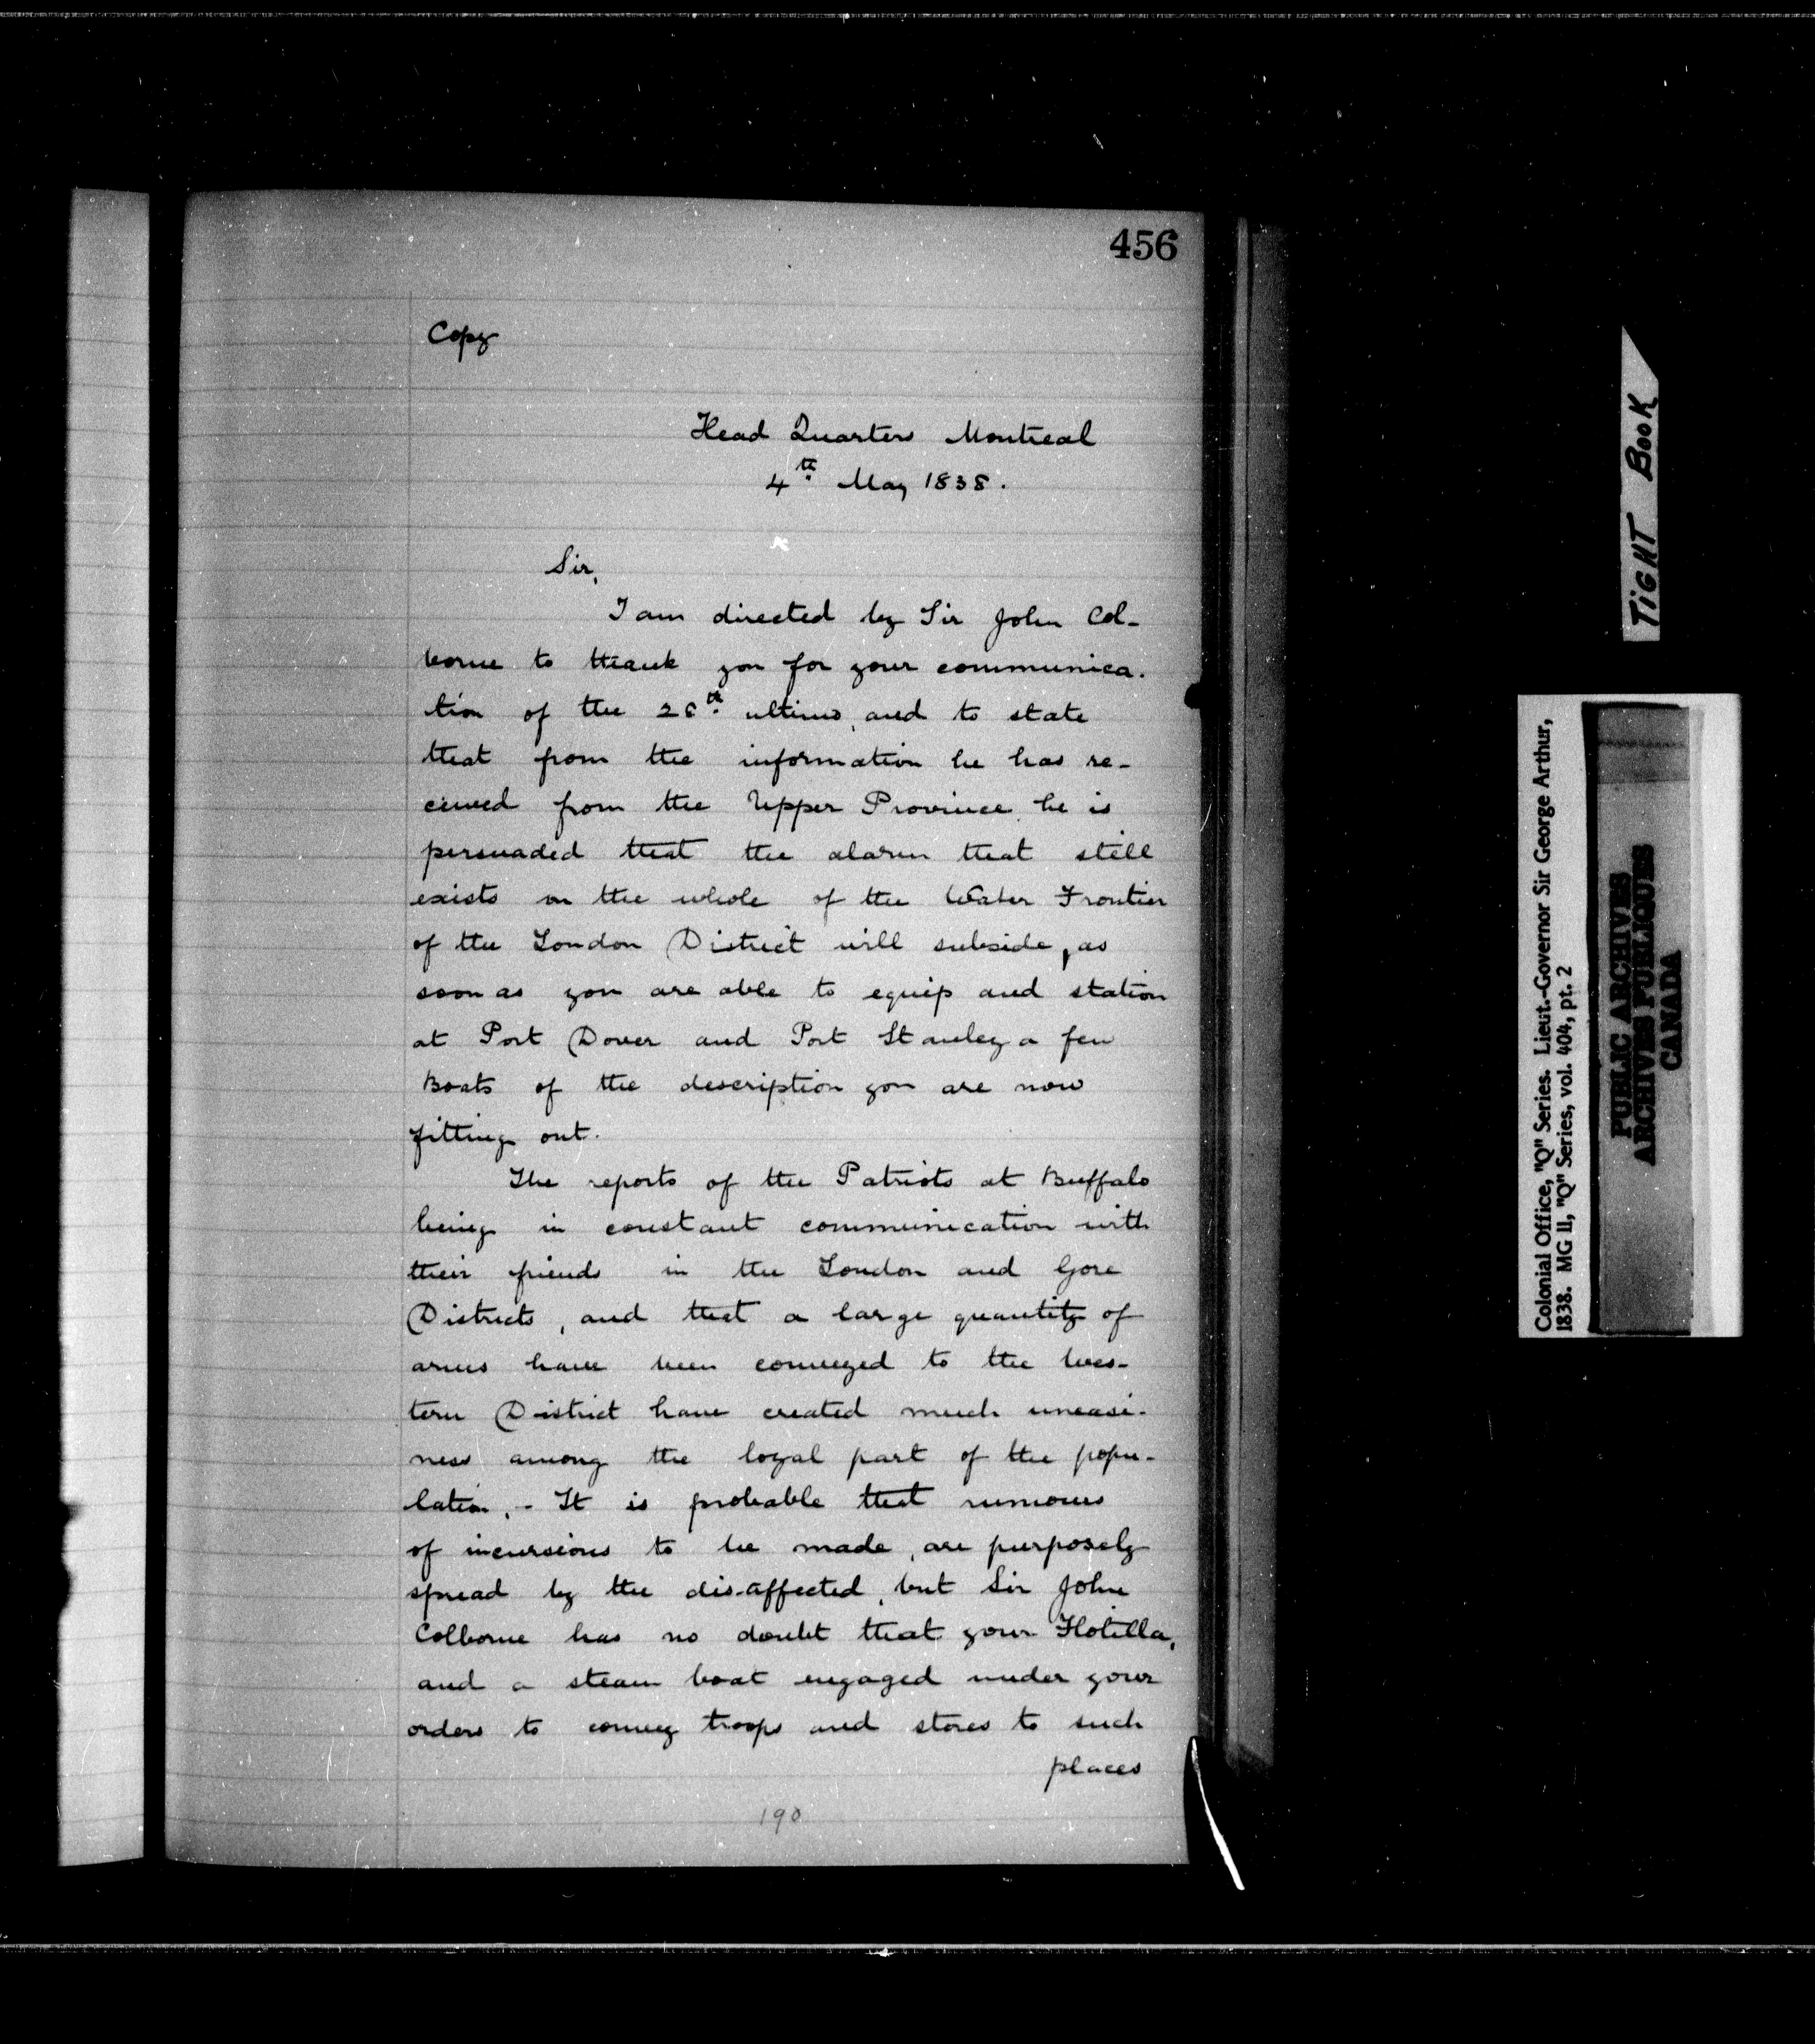 456
Copy
Head Quarters Montreal
4th May 1838.
Sir,
I am directed by Sir John Col-
borne to thank you for your communica-
tion of the 28th ultimo, and to state
that from the information he has re-
ceived from the Upper Province he is
persuaded that the alarm that still
exists on the whole of the Water Frontier
of the London District will subside, as
soon as you are able to equip and station
at Port Dover and Port Stanley a few
Boats of the description you are now
fitting out.
The reports of the Patriots at Buffalo
being in constant communication with
their friends in the London and Gore
Districts, and that a large quantity of
arms have been conveyed to the Wes-
tern District have created much uneasi-
ness among the loyal part of the popu-
lation. - It is probable that rumours
of incursions to be made, are purposely
spread by the disaffected, but Sir John
Colborne has no doubt that your Flotilla,
and a steam boat engaged under your
orders to convey troops and stores to such
places
190
TIGHT BOOK
Colonial Office, "Q" Series. Lieut.-Governor Sir George Arthur,
1838. MG 11, "Q" Series, vol. 404, pt. 2
PUBLIC ARCHIVES
ARCHIVES PUBLIQUES
CANADA